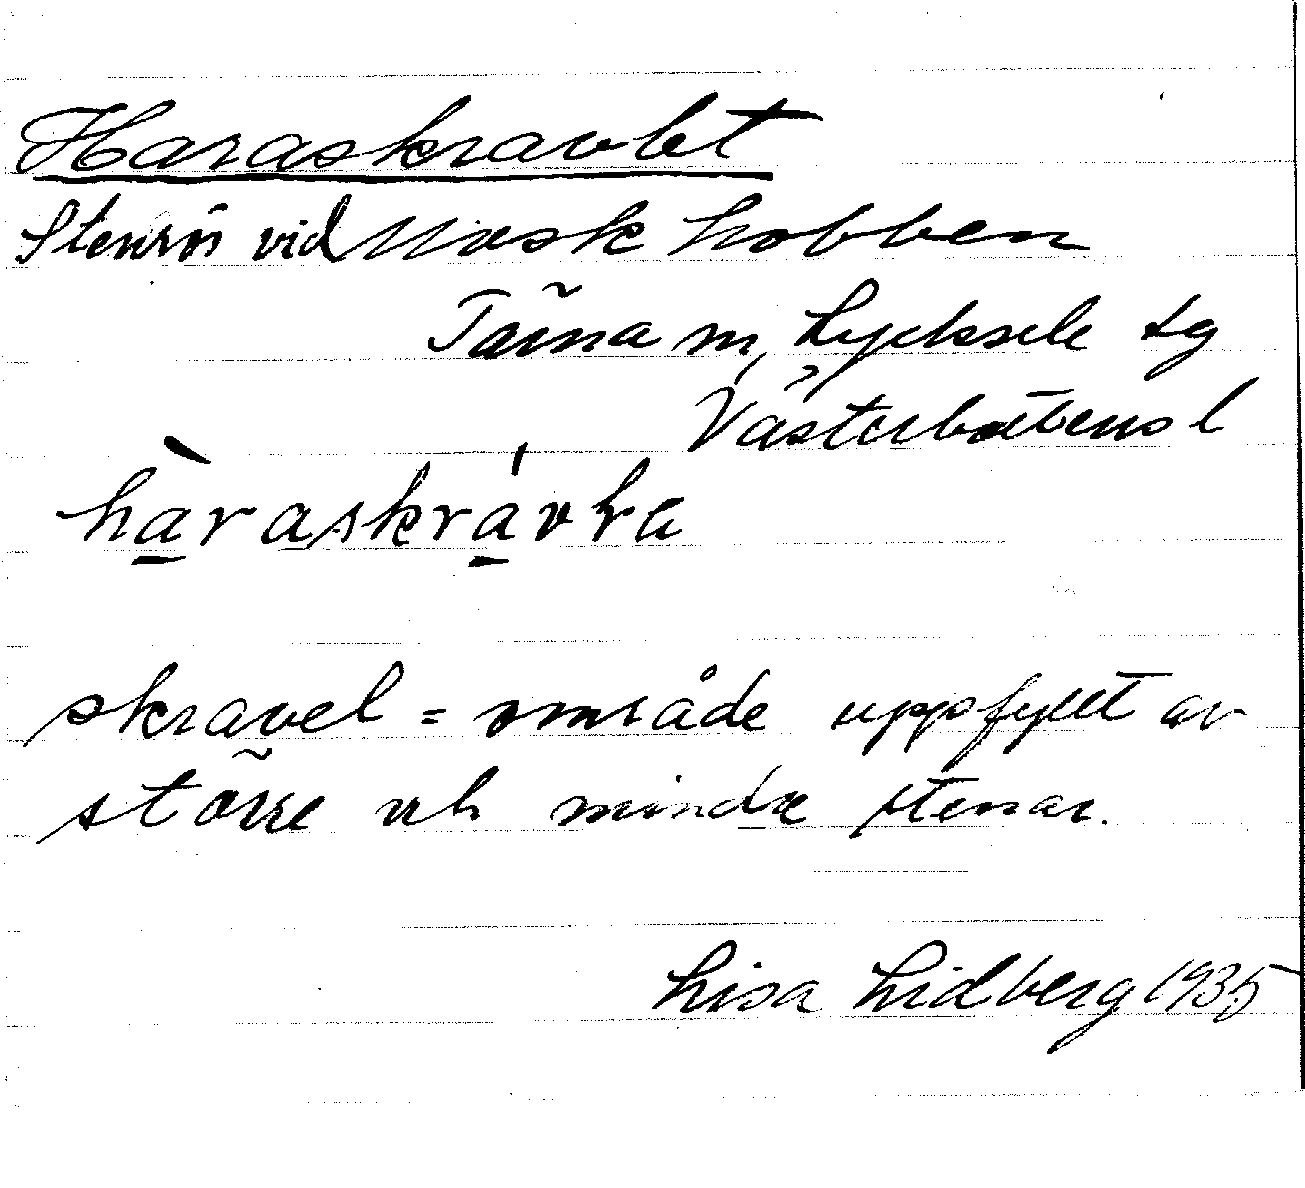 Haraskravlet
Stenrös vid kobben
Tärna sn, Lycksele lg
Västerbottens l
hàraskrávla
skravel = område uppfyllt av
större och mindre stenar.
Lisa Lidberg 1935